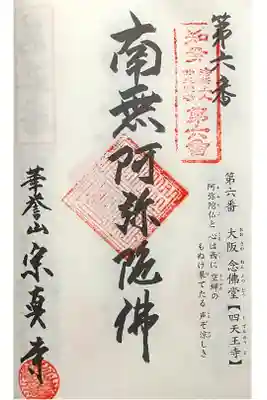 第六番
南無阿弥陀佛
華誉山 宗真寺
第六番 大阪 念佛堂【四天王寺】
阿弥陀仏と 心は西に 空蝉の
もぬけ果てたる 声ぞ涼しき